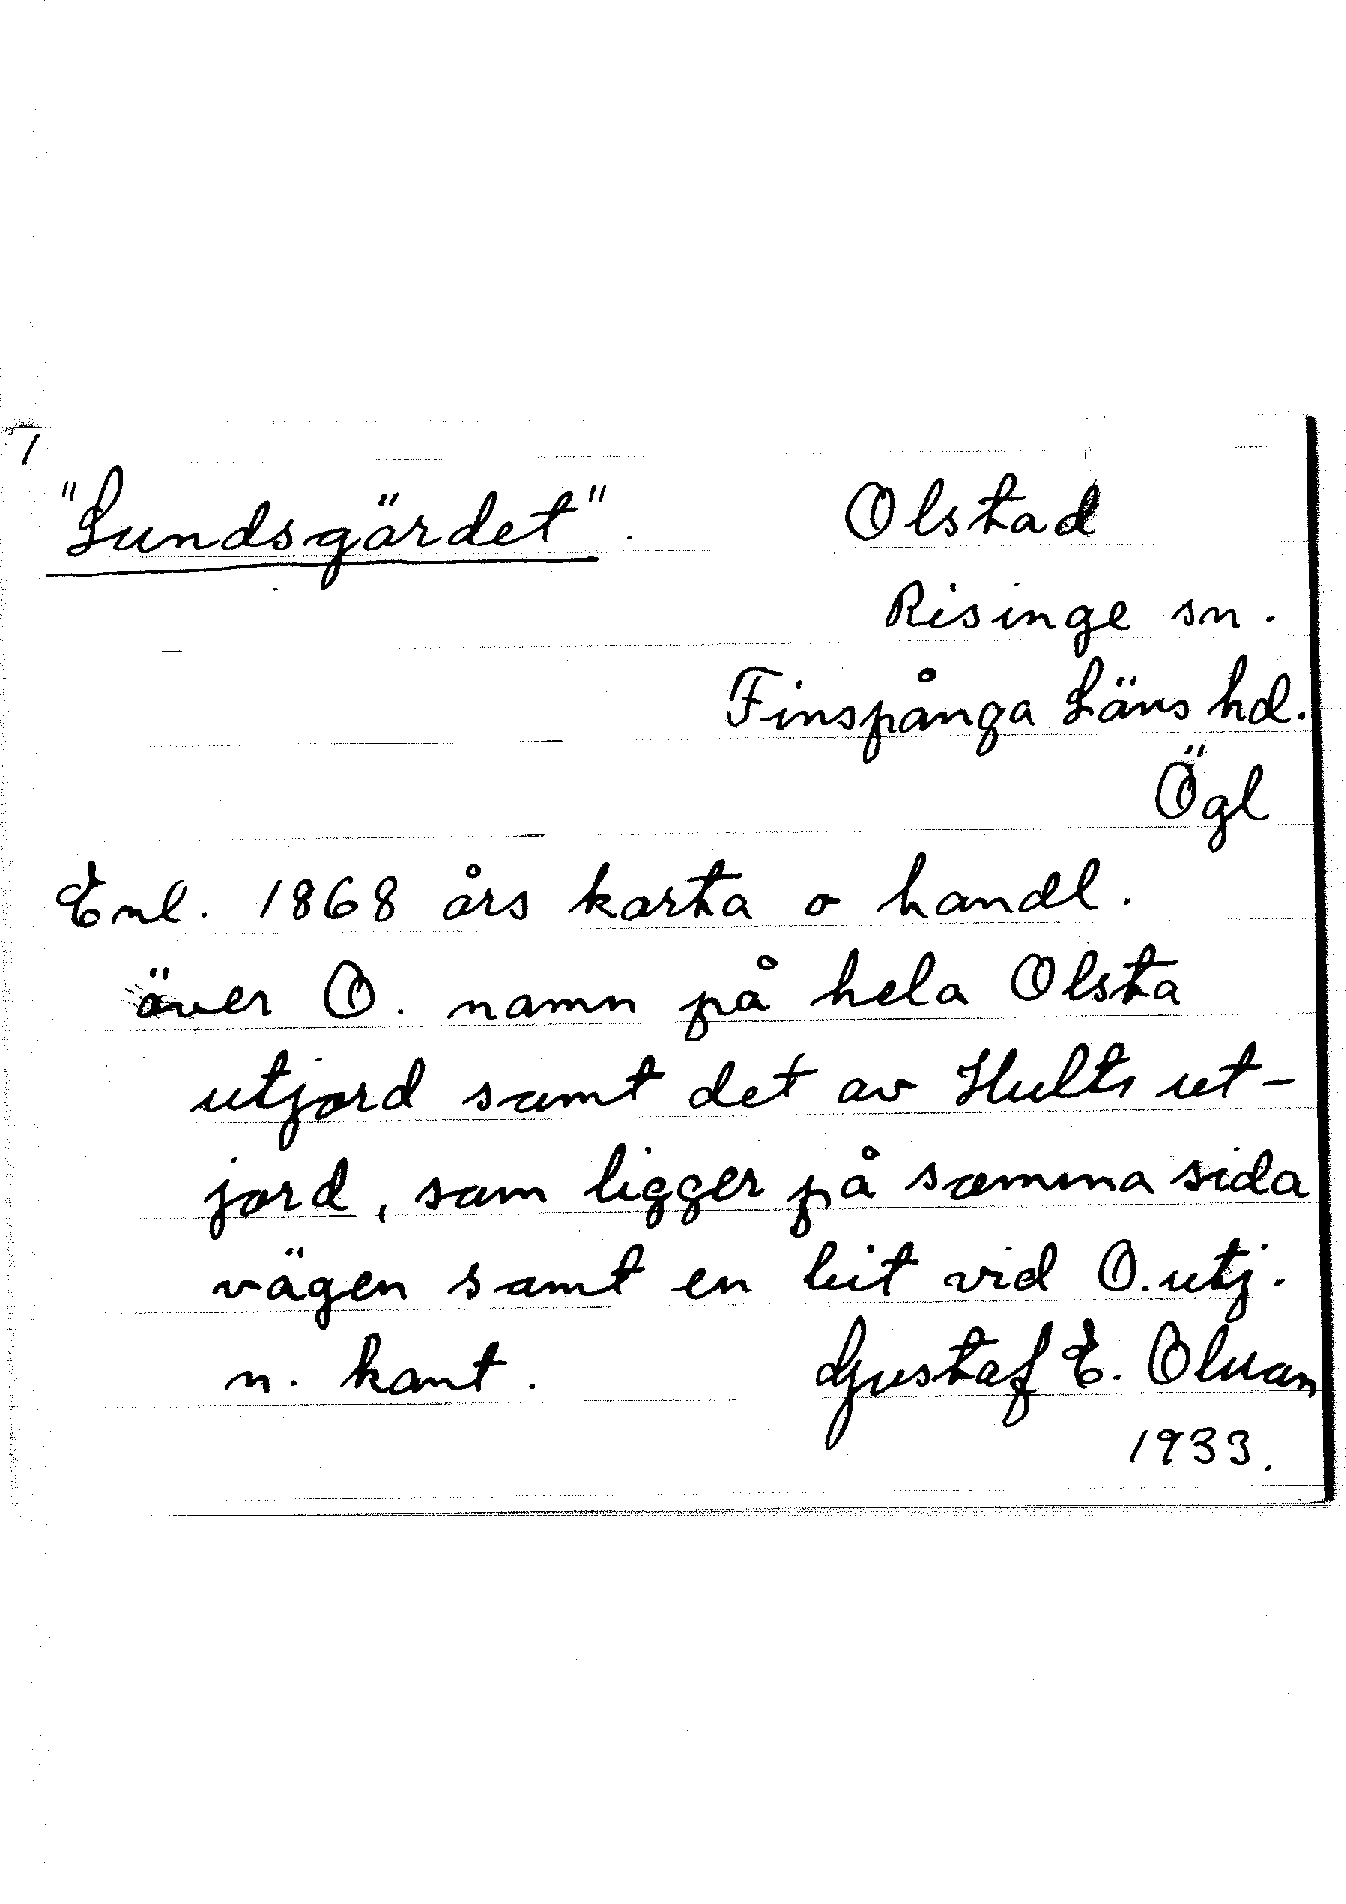 "Lundsgärdet". Olstad
Risinge sn.
Finspånga Läns hd.
Ögl
Enl. 1868 års karta o handl.
över O. namn på hela Olsta
utjord samt det av Hults ut-
jord, som ligger på samma sida
vägen samt en bit vid O. utj.
n. kant. Gustaf E. Olsson
1933.